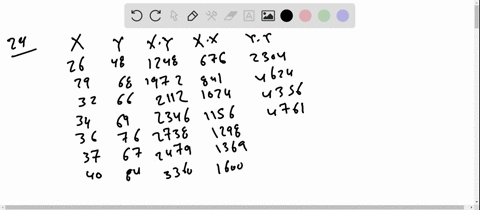 24 X Y X.Y X.X Y.Y
26 48 1248 676 2304
29 68 1972 841 4624
32 66 2112 1024 4356
34 69 2346 1156 4761
36 76 2738 1298
37 67 2479 1369
40 84 3360 1600